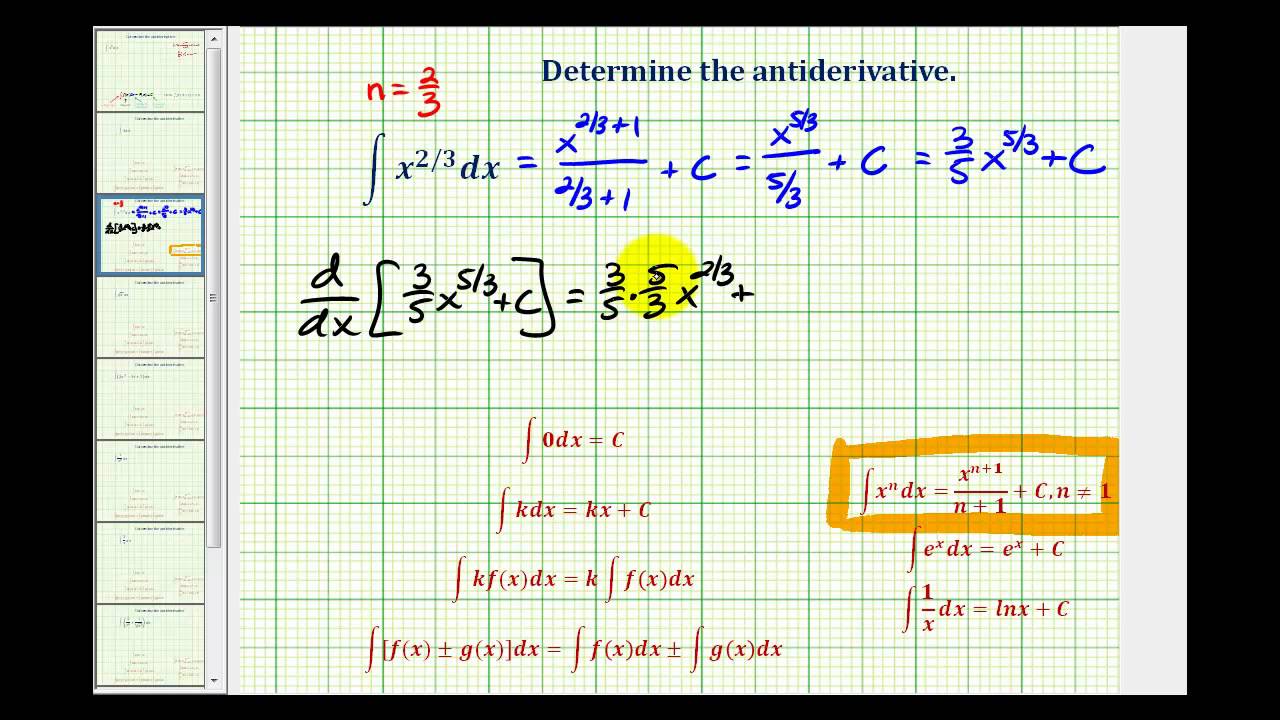 Determine the antiderivative.
n = 2/3
∫ x^{2/3} dx = x^{2/3 + 1} / (2/3 + 1) + C = x^{5/3} / (5/3) + C = 3/5 x^{5/3} + C
d/dx [3/5 x^{5/3} + C] = 3/5 · 5/3 x^{2/3} +
∫ 0dx = C
∫ kdx = kx + C
∫ kf(x)dx = k ∫ f(x)dx
∫ [f(x) ± g(x)]dx = ∫ f(x)dx ± ∫ g(x)dx
∫ xⁿdx = x^{n+1} / (n + 1) + C, n ≠ 1
∫ eˣdx = eˣ + C
∫ 1/x dx = lnx + C